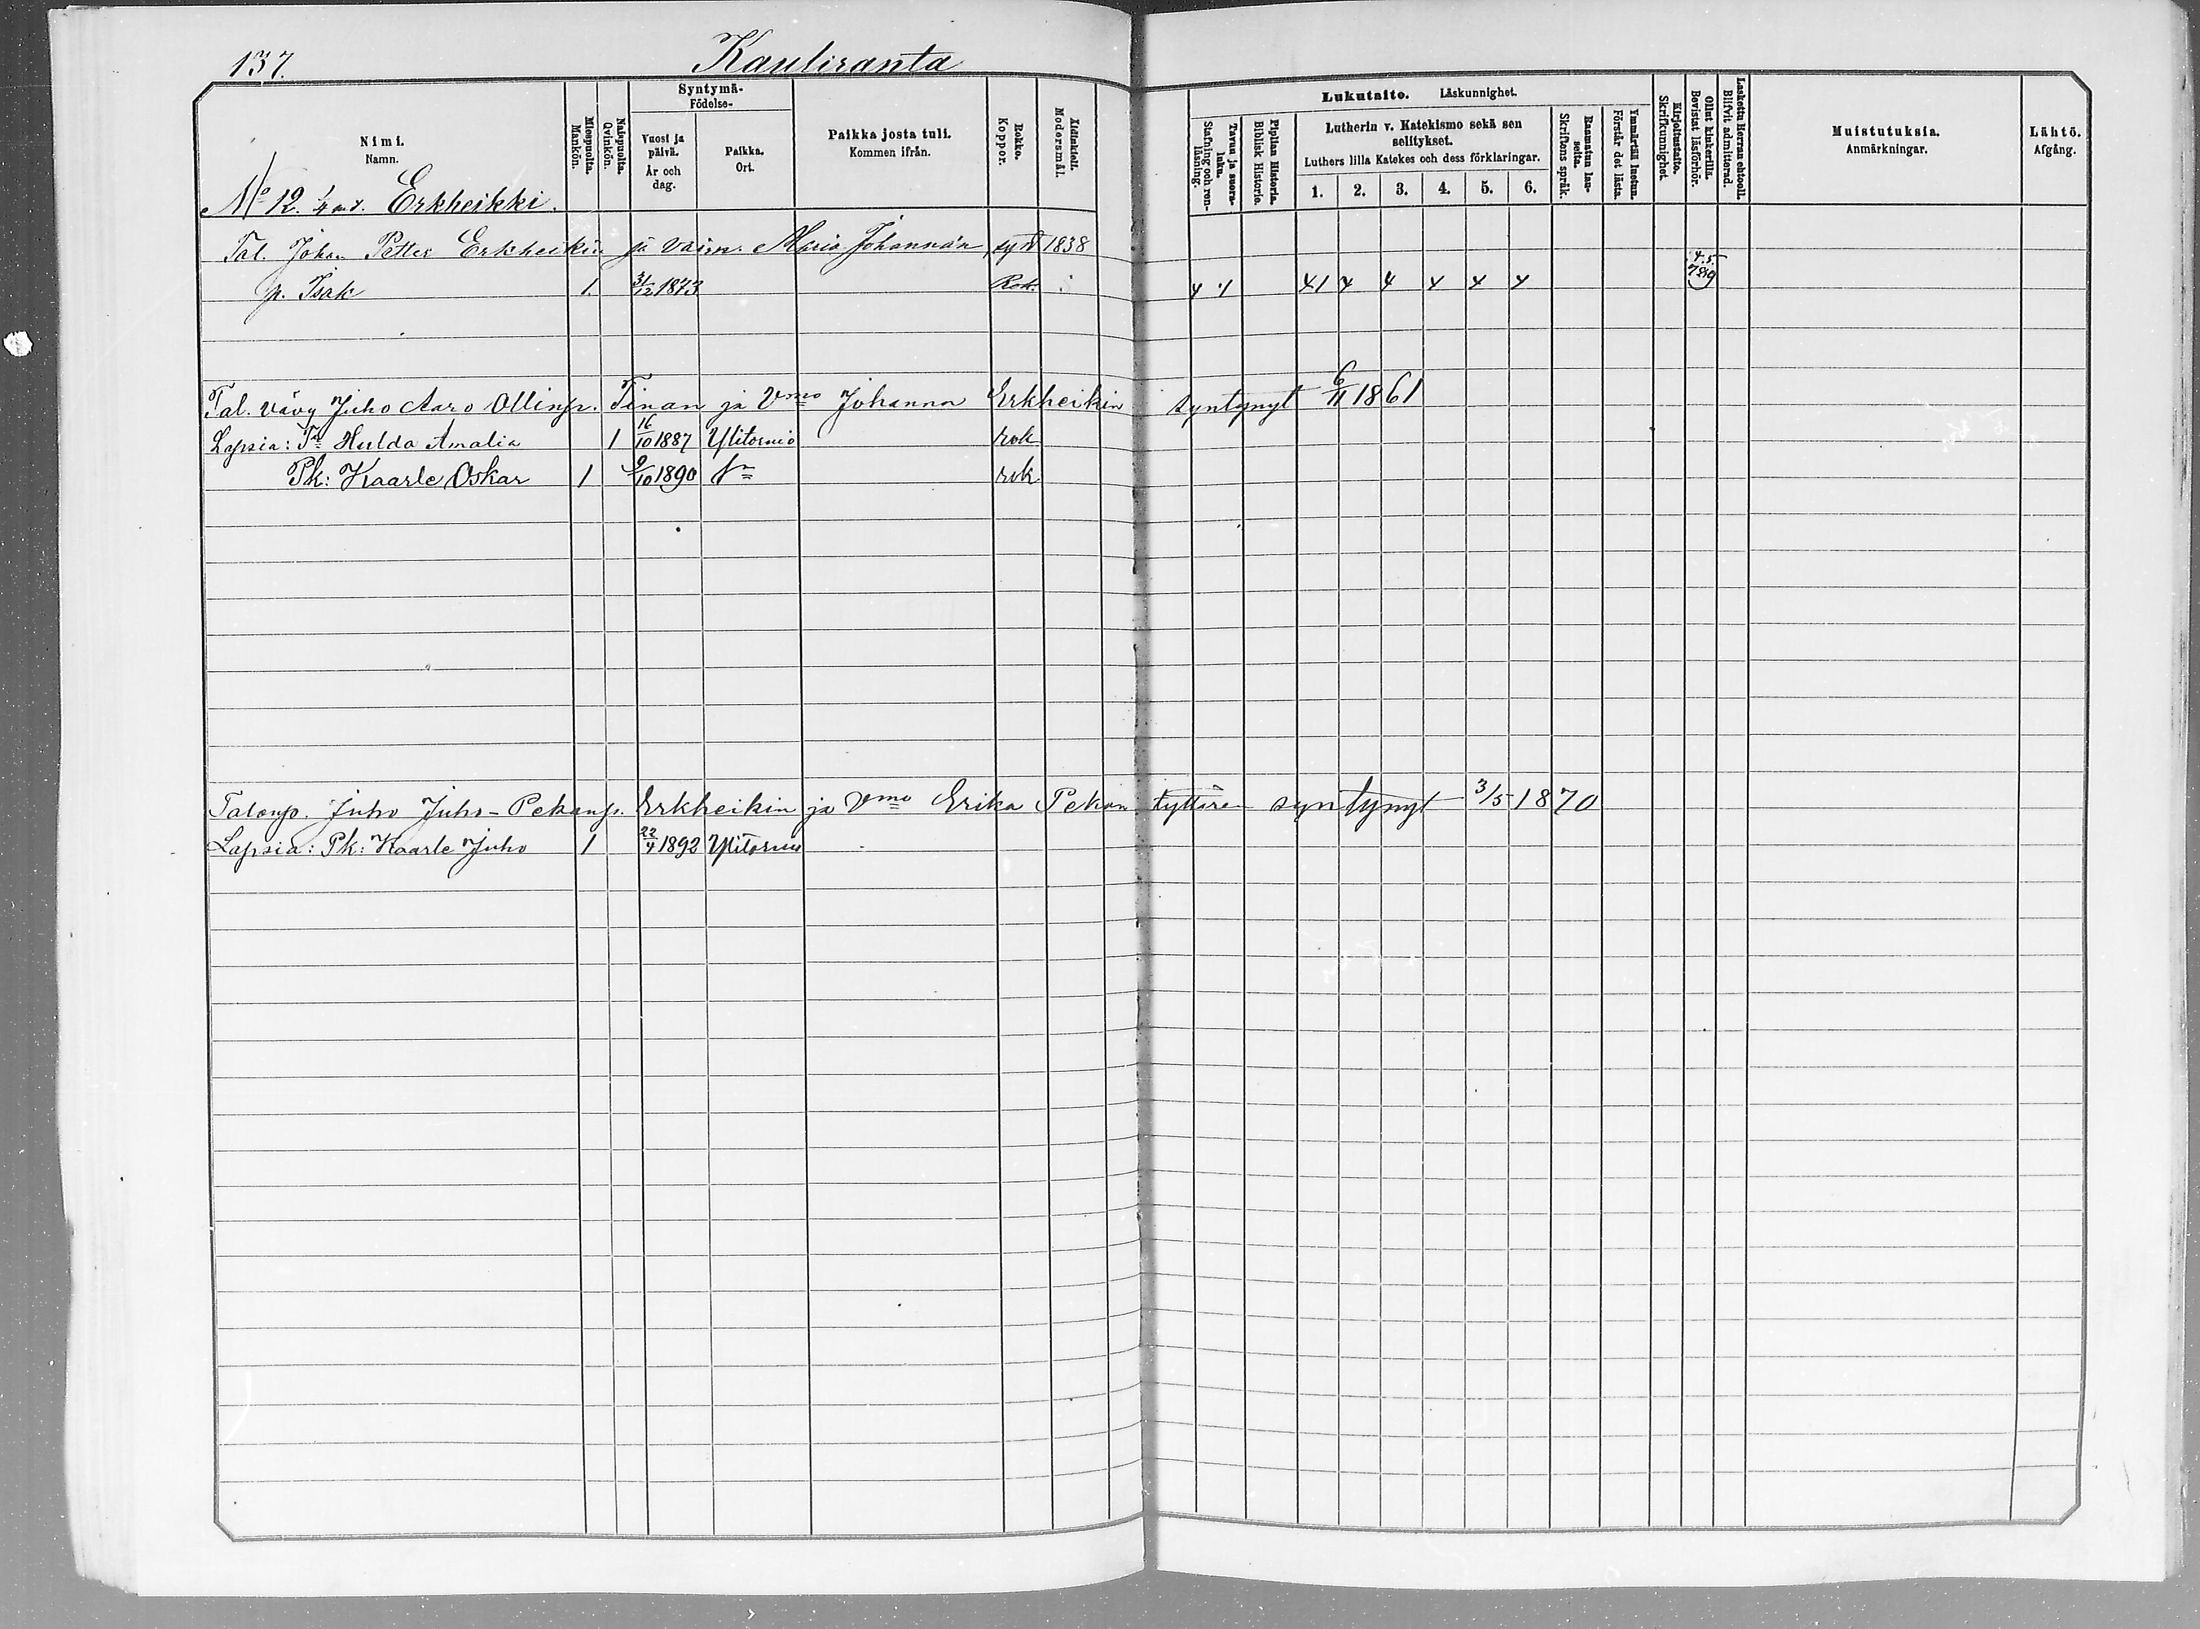 137.
Kauliranta
Nimi.
Namn.
Miespuolta.
Mankön.
Naispuolta.
Qvinkön.
Syntymä-
Födelse-
Vuosi ja
päivä.
År och
dag.
Paikka.
Ort.
Paikka josta tuli.
Kommen ifrån.
Rokko.
Koppor.
Äidinkieli.
Modersmål.
Lukutaito. Läskunnighet.
Tavuu ja suora-
luku.
Stafning och ren-
läsning.
Piplian Historia.
Biblisk Historie.
Lutherin v. Katekismo sekä sen
selitykset.
Luthers lilla Katekes och dess förklaringar.
1. 2. 3. 4. 5. 6.
Raamatun lau-
seita.
Skriftens språk.
Ymmärtää luetun.
Förstår det lästa.
Kirjoitustaito.
Skrifkunnighet.
Ollut kinkerillä.
Bevistat läsförhör.
Laskettu Herran ehtoolle.
Blifvit admitterad.
Muistutuksia.
Anmärkningar.
Lähtö.
Afgång.
No 12. 1/4 m. Erkheikki.
Tal. Johan Petter Erkheikin ja vaim. Maria Johannan synt 1838
p. Isak 1. 31/12 1873 Rok. 4 4 41 4 4 4 4 4 4.5. 789
Tal. vävy Juho Aaro Ollinp. Tinan ja Vmo Johanna Erkheikin syntynyt 6/11 1861
Lapsia: Tr Hulda Amalia 1 16/10 1887 Ylitornio rok
Pk: Kaarle Oskar 1 9/10 1890 rok
Talonp. Juho Juho-Pekanp. Erkheikin ja Vmo Erika Pekan tyttären syntynyt 3/5 1870
Lapsia: Pk: Kaarle Juho 1 22/4 1892 Ylitornio